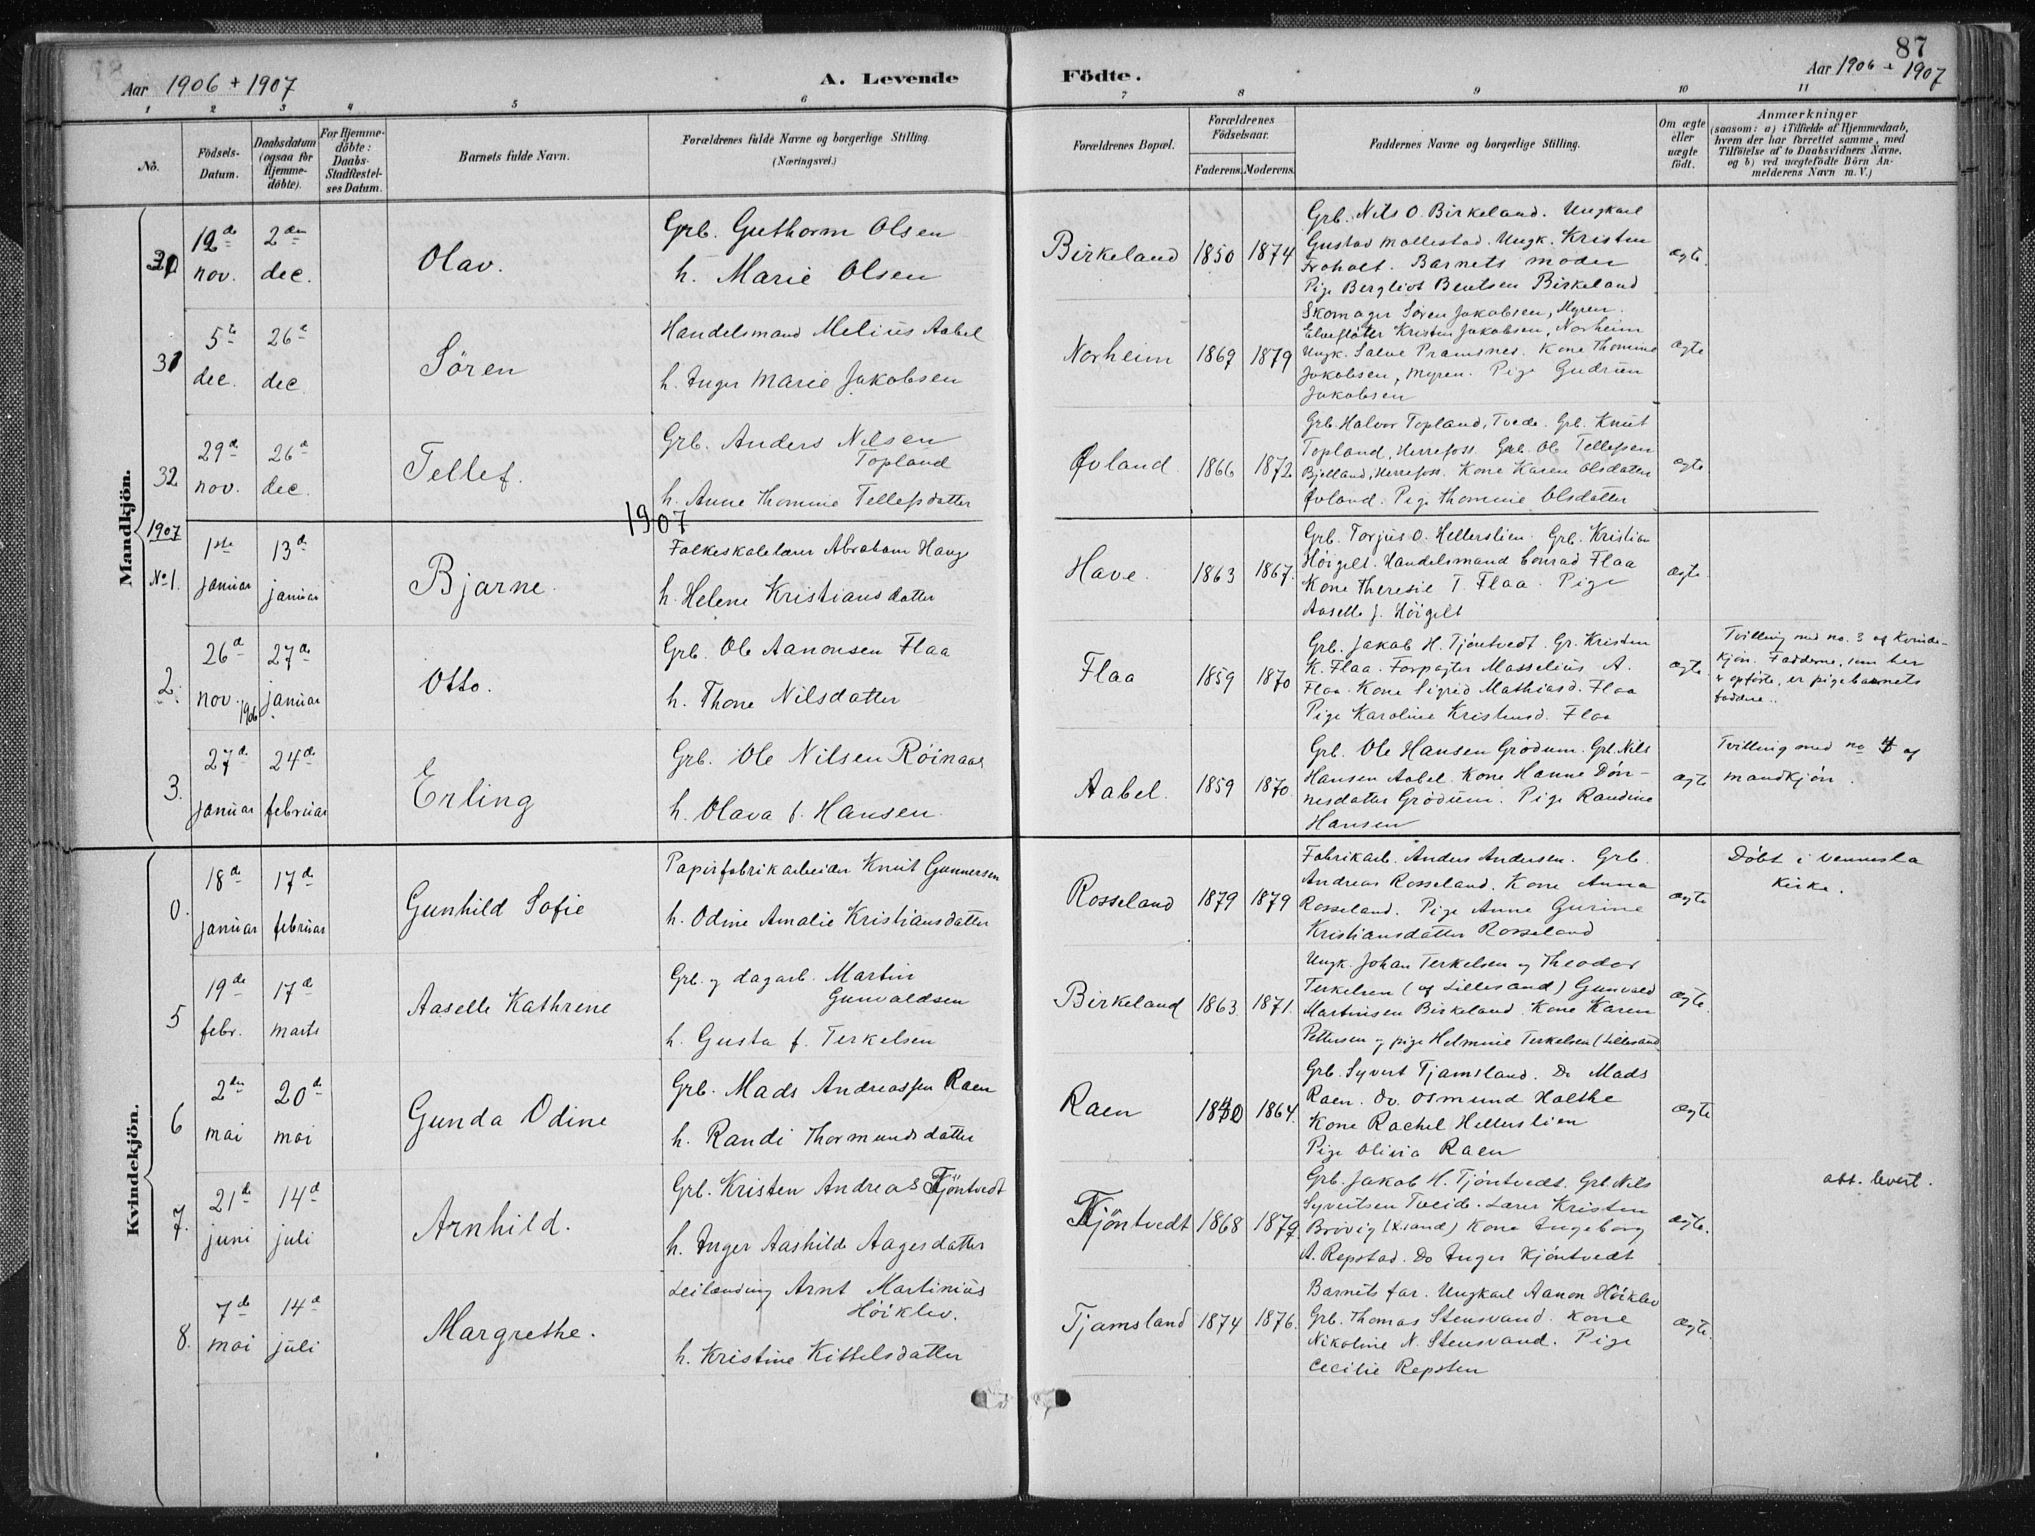 87
Aar 1906 + 1907
A. Levende
Födte.
Aar 1906 + 1907
1 2 3 4 5 6 7 8 9 10 11
No.
Födsels-Datum.
Daabsdatum (ogsaa for Hjemme-döbte).
For Hjemme-döbte: Daabs-Stadfæstelses Datum.
Barnets fulde Navn.
Forældrenes fulde Navne og borgerlige Stilling.
(Næringsvei.)
Forældrenes Bopæl.
Forældrenes Födselsaar.
Faderens. Moderens.
Faddernes Navne og borgerlige Stilling.
Om ægte eller uægte födt.
Anmærkninger
(saasom: a) i Tilfælde af Hjemmedaab,
hvem der har forrettet samme, med
Tilföielse af to Daabsvidners Navne.
og b) ved uægtefödte Börn An-
melderens Navn m. V.)
Mandkjön.
12de nov.
2den dec.
Olav.
Grb. Guthorm Olsen
h. Marie Olsen
Birkeland
1850
1874
Grb. Nils O. Birkeland. Ungkarl
Gustav Mollestad. Ungk. Kristen
Froholt. Barnets moder
Pige Bergliot Bentsen Birkeland
ægte.
31
5te dec.
26de dec
Sören
Handelsmand Melius Aabel
h. Inger Marie Jakobsen
Norheim
1869
1879
Skomager Sören Jakobsen, Myren.
Elvefløter Kristen Jakobsen, Norheim
Ungk. Salve Pramsnes. Kone Thomine
Jakobsen, Myren. Pige Gudrun
Jakobsen
ægte
32
29de nov.
26de dec.
Tellef.
Grb. Anders Nilsen
Topland
h. Anne Thomine Tellefsdatter
Øvland.
1866
1872
Grb. Halvor Topland, Tvede. Grb. Knut
Topland, Herrefoss. Grb. Ole Tellefsen
Bjelland, Herrefoss. Kone Karen Olsdatter
Øvland. Pige Thomine Olsdatter
ægte
1907
1907
No 1.
1ste januar
13de januar
Bjarne.
Folkeskolelærer Abraham Hauge
h. Helene Kristiansdatter
Have.
1863
1867.
Grb. Torjus O. Hellerslien. Grb. Kristian
Höigilt. Handelsmand Conrad Flaa
Kone Theresie T. Flaa. Pige
Aaselle J. Höigilt
ægte.
2.
26de nov. 1906
27de januar
Otto.
Grb. Ole Aanonsen Flaa
h. Thone Nilsdatter
Flaa
1859
1870
Grb. Jakob H. Tjöntvedt. Gr. Kristen
K. Flaa. Forpagter Masselius A.
Flaa. Kone Sigrid Mathiasd. Flaa
Pige Karoline Kristensd. Flaa
ægte
Tvilling med no. 3 af Kvinde-
kjön. Fadderne, som her
er opførte, er pigebarnets
faddere.
3.
27de januar
24de februar
Erling
Grb. Ole Nilsen Röinaas
h. Olava f. Hansen.
Aabel.
1859
1870.
Grb. Ole Hansen Grödum. Grb. Nils
Hansen Aabel. Kone Hanne Dön-
nesdatter Grödum. Pige Randine
Hansen
ægte
Tvilling med no 4 af
mandkjön.
Kvindekjön.
0.
18de januar
17de februar
Gunhild Sofie
Papirfabrikarbeider Knut Gunnersen
h. Odine Amalie Kristiansdatter
Rosseland
1879
1879
Fabrikarb. Anders Andersen. Grb.
Andreas Rosseland. Kone Anna
Rosseland. Pige Anne Gurine
Kristiansdatter Rosseland
ægte
Döbt i Vennesla
kirke.
5
19de febr.
17de marts
Aaselle Kathrine
Grb. og dagarb. Martin
Gunvaldsen
h. Gusta f. Terkelsen
Birkeland
1863
1871.
Ungk. Johan Terkelsen og Theodor
Terkelsen (af Lillesand) Gunvald
Martinsen Birkeland. Kone Karen
Pettersen og pige Helmine Terkelsen (Lillesand)
ægte.
6
2den mai
20de mai
Gunda Odine
Grb. Mads Andreassen Raen
h. Randi Thormundsdatter
Raen
1864.
Grb. Syvert Tjamsland. Do Mads
Raen. Do. Osmund Holthe
Kone Rachel Hellerslien
Pige Olivia Raen
ægte
7.
21de juni
14de juli
Arnhild.
Grb. Kristen Andreas Kjöntvedt
h. Inger Aashilde Aagesdatter
Kjöntvedt
1868
1879.
Grb. Jakob H. Tjöntvedt. Grb. Nils
Syvertsen Tveide. Lærer Kristen
Brövig (X.sand) Kone Ingeborg
A. Repstad. Do Inger Kjöntvedt
ægte.
att. levert.
8.
7de mai
14de juli
Margrethe.
Leilænding Arnt Martinius
Höiklev.
h. Kristine Kittelsdatter
Tjamsland
1874
1876.
Barnets far. Ungkarl Aanon Höiklev
Grb. Thomas Stensvand. Kone
Nikoline N. Stensvand. Pige
Cecilie Repsten
ægte.